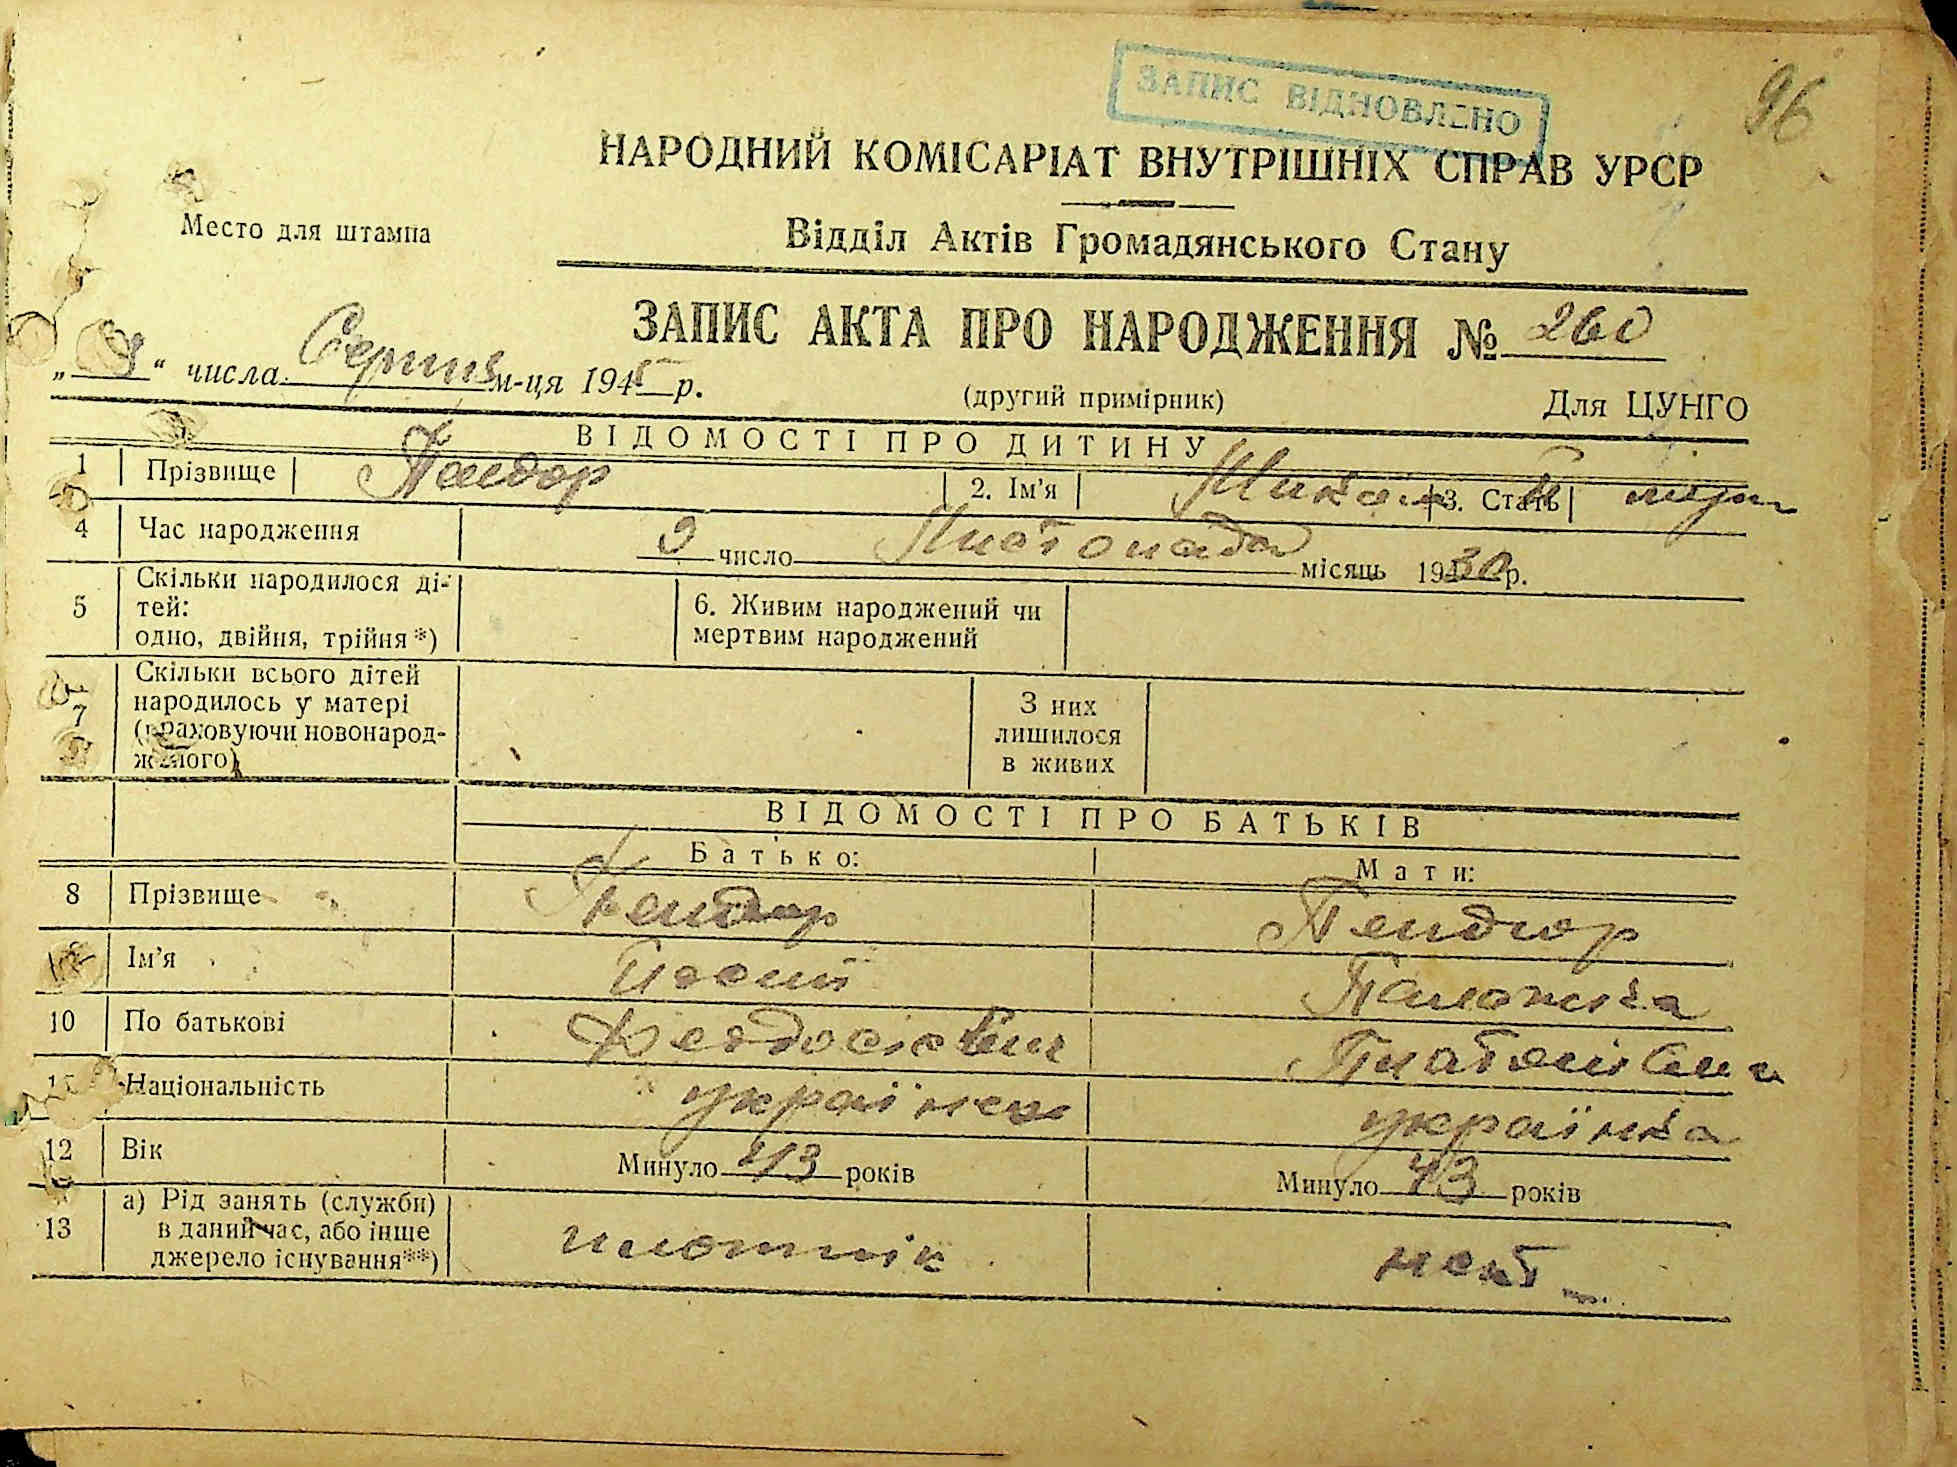 96
ЗАПИС ВІДНОВЛЕНО
НАРОДНИЙ КОМІСАРІАТ ВНУТРІШНІХ СПРАВ УРСР
Место для штампа
Відділ Актів Громадянського Стану
ЗАПИС АКТА ПРО НАРОДЖЕННЯ № 260
„ 9 “ числа Серпня м-ця 1945 р.
(другий примірник) Для ЦУНГО
ВІДОМОСТІ ПРО ДИТИНУ
1 Прізвище 2. Ім'я Микола 3. Стать
4 Час народження 9 число Листопада місяць 1930 р.
5 Скільки народилося ді-
тей:
одно, двійня, трійня*)
6. Живим народжений чи
мертвим народжений
7 Скільки всього дітей
народилось у матері
(враховуючи новонарод-
женого)
З них
лишилося
в живих
ВІДОМОСТІ ПРО БАТЬКІВ
Батько: Мати:
8 Прізвище Пендюр
Ім'я Палажка
10 По батькові Феодосієвич
Національність українець українка
12 Вік Минуло 43 років Минуло 43 років
13 а) Рід занять (служби)
в даний час, або інше
джерело існування**)
плотнік нет